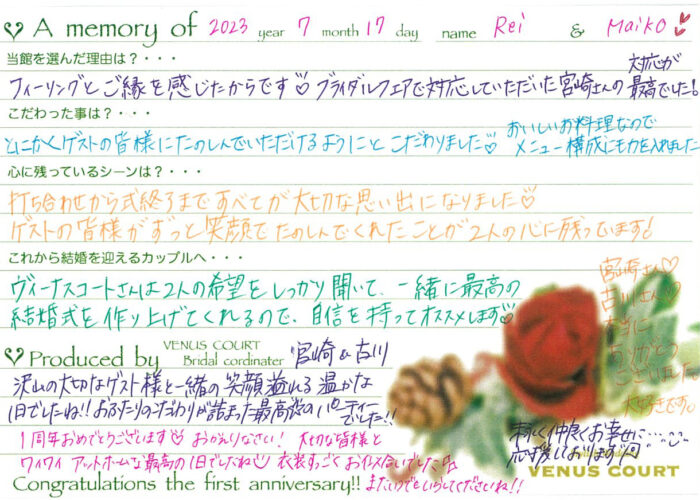 A memory of 2023 year 7 month 17 day name Rei & Maiko
当館を選んだ理由は？・・・
フィーリングとご縁を感じたからです♡ ブライダルフェアで対応していただいた宮崎さんの対応が最高でした!
こだわった事は？・・・
とにかくゲストの皆様にたのしんでいただけるようにと こだわりました♡ おいしいお料理なので
メニュー構成にも力を入れました
心に残っているシーンは？・・・
打ち合わせから式終了まですべてが大切な思い出になりました♡
ゲストの皆様がずっと笑顔でたのしんでくれたことが2人の心に残っています!
これから結婚を迎えるカップルへ・・・
ヴィーナスコートさんは2人の希望をしっかり聞いて、一緒に最高の
結婚式を作り上げてくれるので、自信を持ってオススメします♡
宮崎さん♡
古川さん♡
本当に
ありがとう
ございました
大好きです
Produced by VENUS COURT Bridal cordinater 宮崎 & 古川
沢山の大切なゲスト様と一緒の笑顔溢れる温かな
1日でしたね!! おふたりのこだわりが詰まった最高のパーティーでした!!
1周年おめでとうございます♡ おかえりなさい! 大切な皆様と
ワイワイ アットホームな最高の1日でしたね♡ 衣装すっごくお似合いでした
またいつでもいらしてくださいね!!
末永く仲良くお幸せに
応援しております
Congratulations the first anniversary!!
VENUS COURT